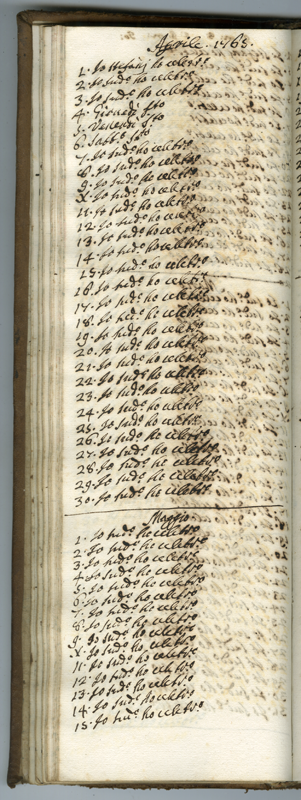 Aprile. 1765.
1. Io Stefanj ho celebr.º
2. Io sud.º ho celebr.º
3. Io sud.º ho celebr.º
4. Giovedì S.to
5. Venerdì S.to
6. Sabb.º S.to
7. Io sud.º ho celebr.º
8. Io sud.º ho celebr.º
9. Io sud.º ho celebr.º
X. Io sud.º ho celebr.º
11. Io sud.º ho celebr.º
12. Io sud.º ho celebr.º
13. Io sud.º ho celebr.º
14. Io sud.º ho celebr.º
15. Io sud.º ho celebr.º
16. Io sud.º ho celebr.º
17. Io sud.º ho celebr.º
18. Io sud.º ho celebr.º
19. Io sud.º ho celebr.º
20. Io sud.º ho celebr.º
21. Io sud.º ho celebr.º
22. Io sud.º ho celebr.º
23. Io sud.º ho celebr.º
24. Io sud.º ho celebr.º
25. Io sud.º ho celebr.º
26. Io sud.º ho celebr.º
27. Io sud.º ho celebr.º
28. Io sud.º ho celebr.º
29. Io sud.º ho celebr.º
30. Io sud.º ho celebr.º
Maggio.
1. Io sud.º ho celebr.º
2. Io sud.º ho celebr.º
3. Io sud.º ho celebr.º
4. Io sud.º ho celebr.º
5. Io sud.º ho celebr.º
6. Io sud.º ho celebr.º
7. Io sud.º ho celebr.º
8. Io sud.º ho celebr.º
9. Io sud.º ho celebr.º
X. Io sud.º ho celebr.º
11. Io sud.º ho celebr.º
12. Io sud.º ho celebr.º
13. Io sud.º ho celebr.º
14. Io sud.º ho celebr.º
15. Io sud.º ho celebr.º